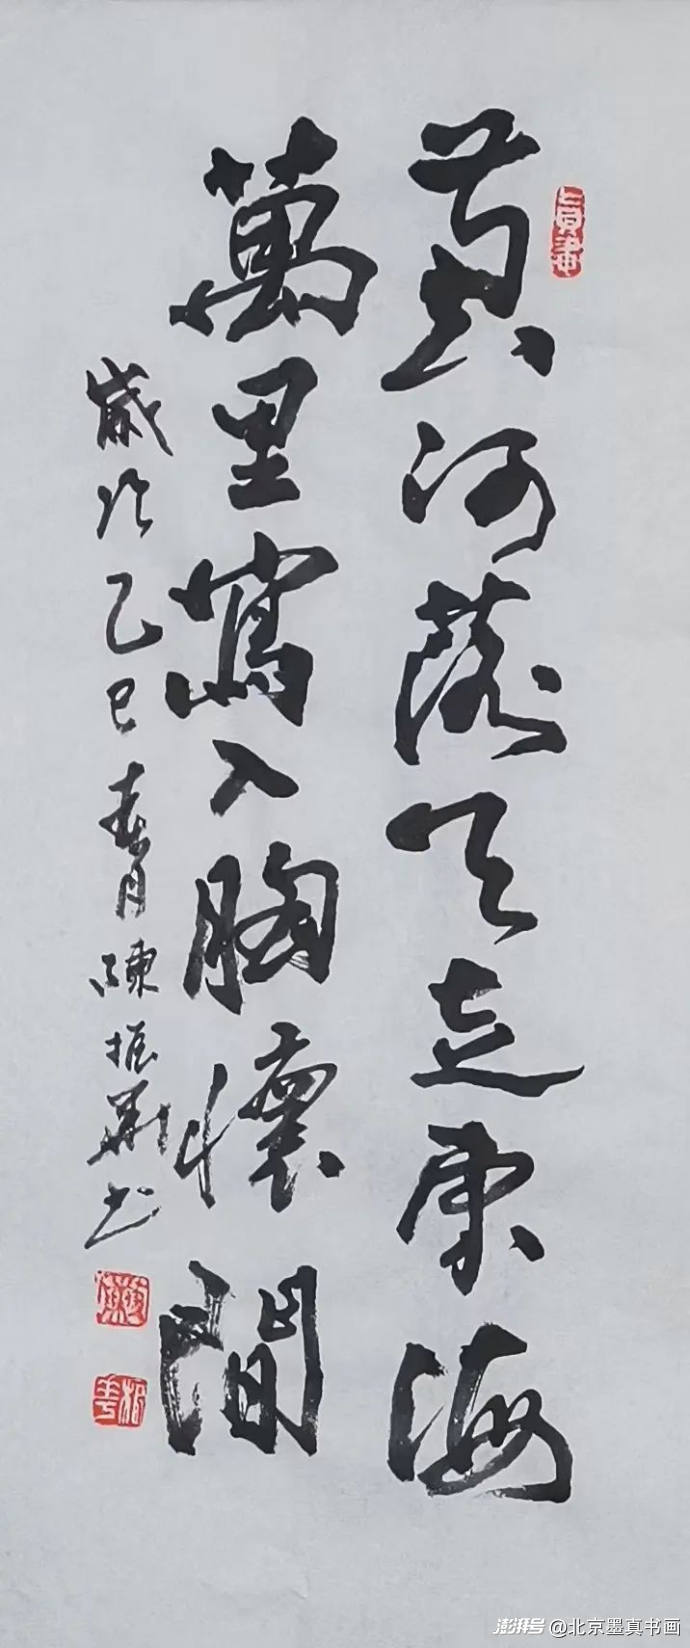 黄河落天走東海
萬里寫入胸懷間
歲次乙巳春月陳振川書
澎湃号@北京墨真书画